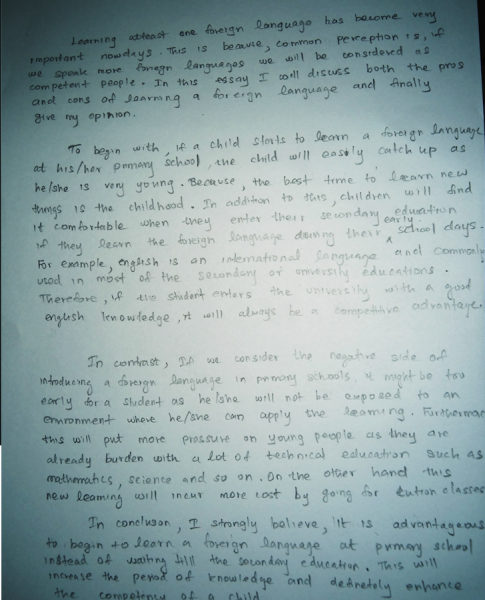 Learning atleast one foreign language has become very
important nowdays. This is because, common perception is, if
we speak more foreign languages we will be considered as
competent people. In this essay I will discuss both the pros
and cons of learning a foreign language and finally
give my opinion.
To begin with, if a child starts to learn a foreign language
at his/her primary school, the child will easily catch up as
he/she is very young. Because, the best time to learn new
things is the childhood. In addition to this, children will find
it comfortable when they enter their secondary education
if they learn the foreign language during their early school days.
For example, english is an international language and commonly
used in most of the secondary or university educations.
Therefore, if the student enters the university with a good
english knowledge, it will always be a competitive advantage.
In contrast, If we consider the negative side of
introducing a foreign language in primary schools, it might be too
early for a student as he/she will not be exposed to an
environment where he/she can apply the learning. Furthermore
this will put more pressure on young people as they are
already burden with a lot of technical education such as
mathematics, science and so on. On the other hand this
new learning will incur more cost by going for tution classes
In conclusion, I strongly believe, it is advantageous
to begin to learn a foreign language at primary school
instead of waiting till the secondary education. This will
increase the period of knowledge and definetely enhance
the competency of a child.